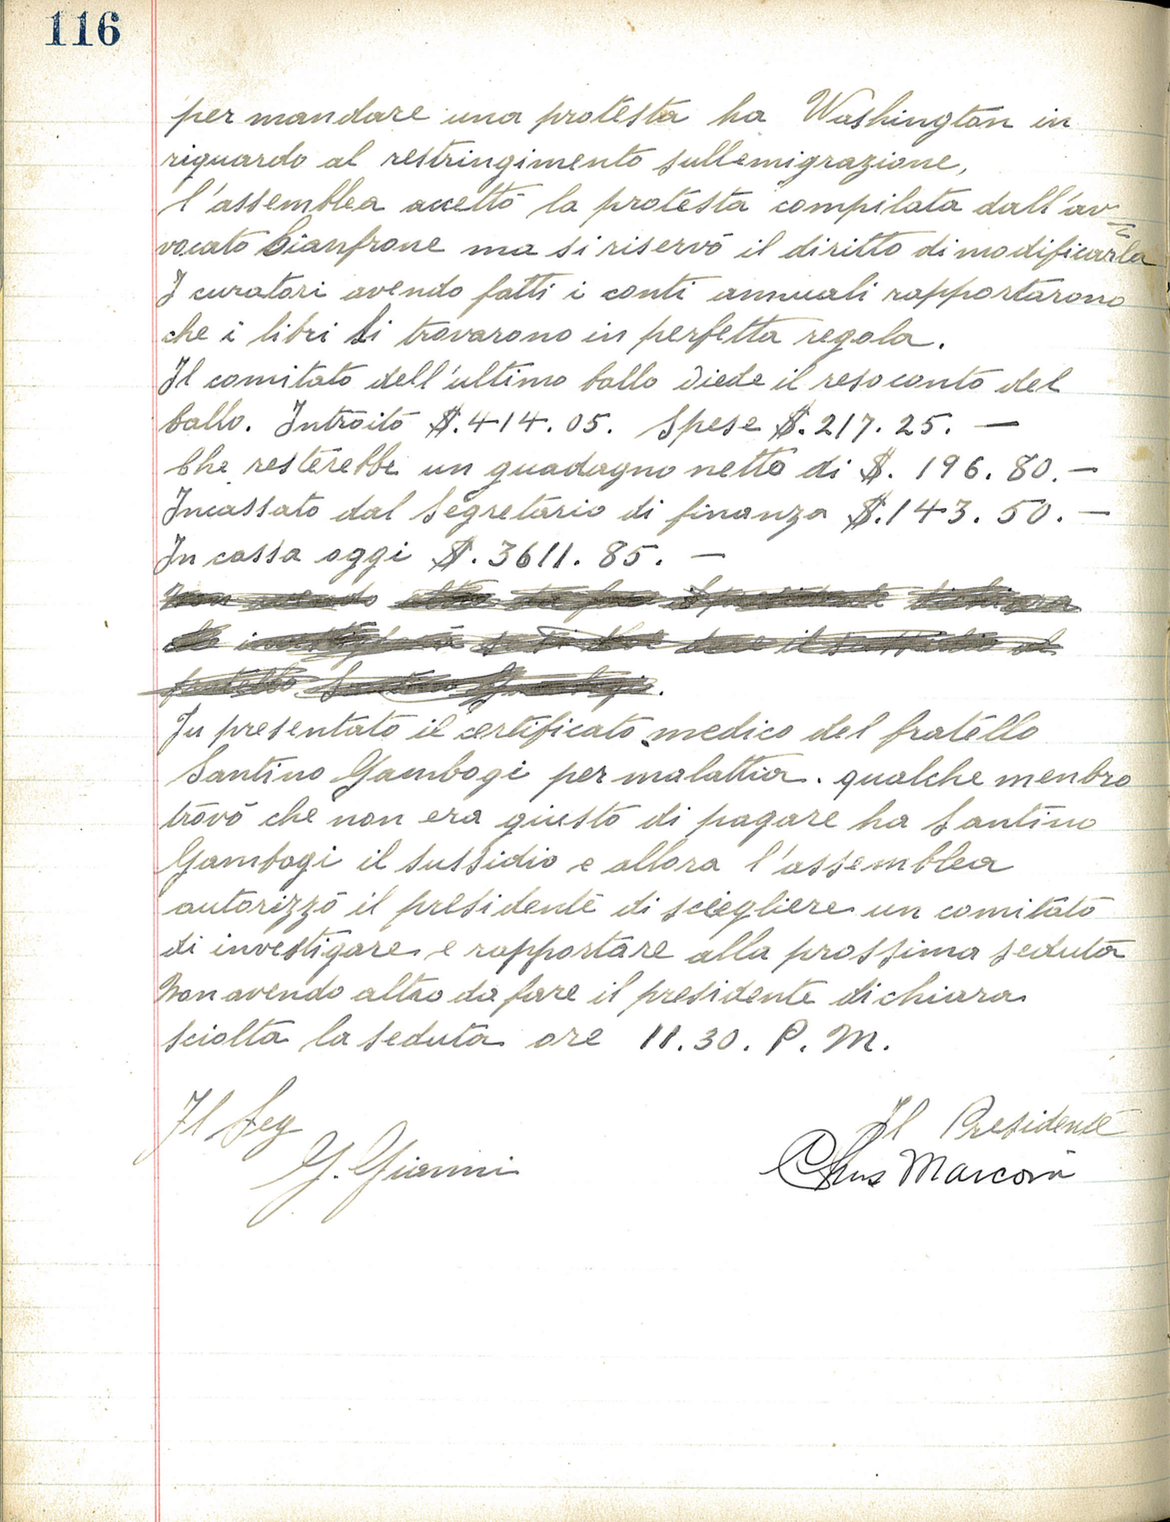 116
per mandare una protesta ha Washington in
riguardo al restringimento sull'emigrazione,
l'assemblea accettò la protesta compilata dall'av=
vocato Cianfrone ma si riservò il diritto di modificarla
I curatori avendo fatti i conti annuali rapportarono
che i libri si trovarono in perfetta regola.
Il comitato dell'ultimo ballo diede il resoconto del
ballo. Introito $.414.05. Spese $.217.25. —
Che resterebbe un guadagno netto di $. 196.80. —
Incassato dal Segretario di finanza $.143.50. —
In cassa oggi $.3611.85. —
Non avendo altro da fare il presidente dichiara
fratello Santino Gambogi.
Fu presentato il certificato medico del fratello
Santino Gambogi per malattia. qualche menbro
trovò che non era giusto di pagare ha Santino
Gambogi il sussidio e allora l'assemblea
autorizzò il presidente di sciegliere un comitato
di investigare e rapportare alla prossima seduta
Non avendo altro da fare il presidente dichiara
sciolta la seduta ore 11.30. P. M.
Il Seg
Il Presidente
G. Gianni
Marconi